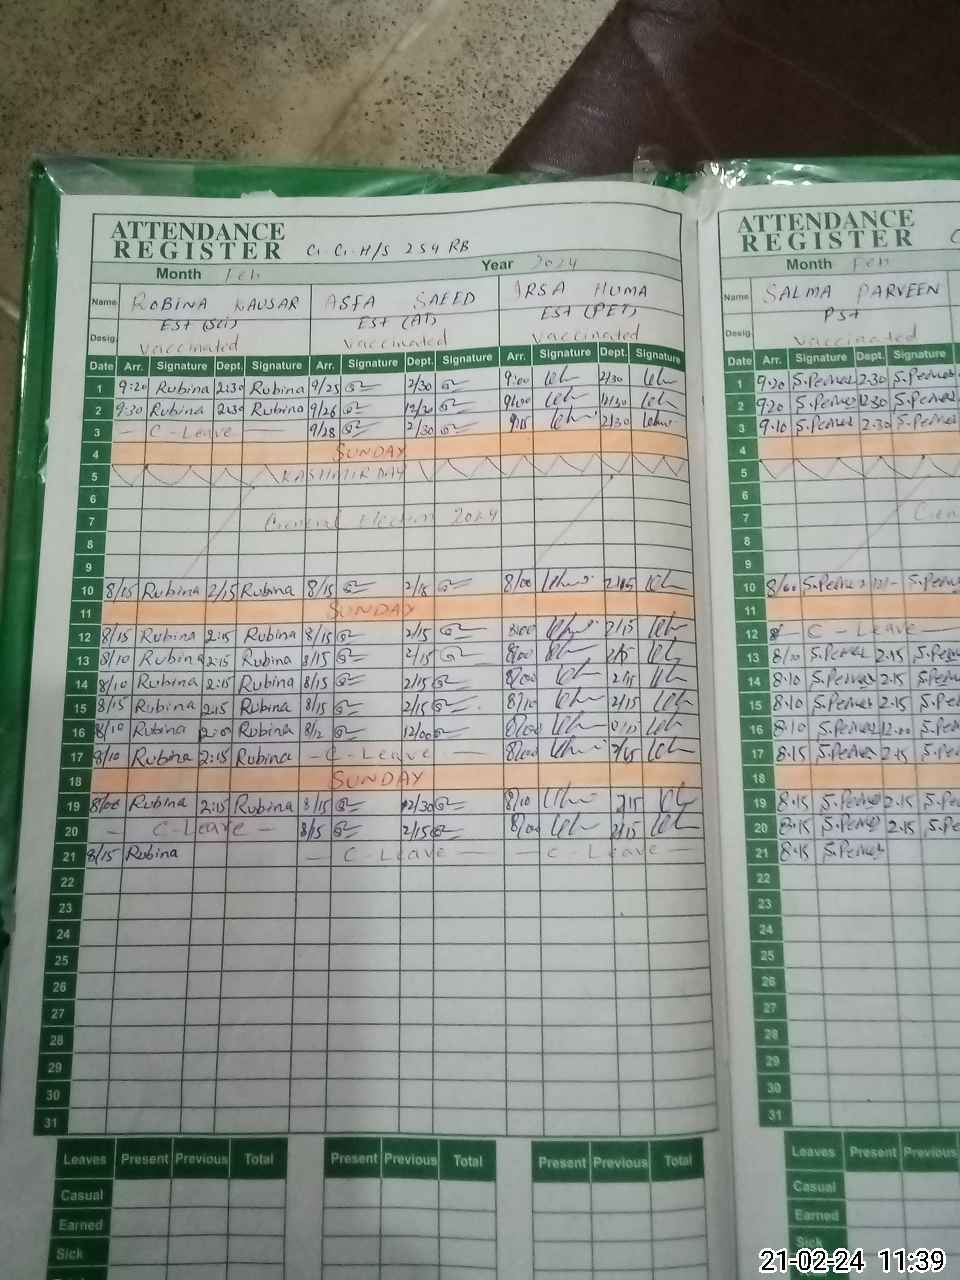 ATTENDANCE
REGISTER G. G. H/S 254 RB
Month Feb Year 2024
Name ROBINA KAUSAR ASFA SAEED IRSA HUMA
EST (Sci) EST (AT) EST (PET)
Desig. vaccinated vaccinated vaccinated
Date Arr. Signature Dept. Signature Arr. Signature Dept. Signature Arr. Signature Dept. Signature
1 9:20 Rubina 2:30 Rubina 9/25 2/30 9:00 2/30
2 9:30 Rubina 2:30 Rubina 9/26 12/30 9/00 12/30
3 – C-Leave – 9/28 2/30 9/15 2/30
4 SUNDAY
5 KASHMIR DAY
6
7 General Election 2024
8
9
10 8/15 Rubina 2/15 Rubina 8/15 2/15 8/00 2/15
11 SUNDAY
12 8/15 Rubina 2:15 Rubina 8/15 2/15 8:00 2/15
13 8/10 Rubina 2:15 Rubina 8/15 2/15 8/00 2/15
14 8/10 Rubina 2:15 Rubina 8/15 2/15 8/00 2/15
15 8/15 Rubina 2:15 Rubina 8/15 2/15 8/10 2/15
16 8/10 Rubina Rubina 8/12 12/00 8/00
17 8/10 Rubina 2:15 Rubina – C-Leave – 8/00 2/15
18 SUNDAY
19 8/00 Rubina 2:15 Rubina 8/15 12/30 8/10 2/15
20 – C-Leave – 8/15 2/15 8/00 2/15
21 8/15 Rubina – C-Leave – – C-Leave –
22
23
24
25
26
27
28
29
30
31
Leaves Present Previous Total Present Previous Total Present Previous Total
Casual
Earned
Sick
ATTENDANCE
REGISTER
Month Feb
Name SALMA PARVEEN
PST
Desig. vaccinated
Date Arr. Signature Dept. Signature
1 9.20 2.30
2 9.20 12.30
3 9.10 2.30
4
5
6
7
8
9
10 8/00
11
12 C-Leave –
13 8/10 2.15
14 8.10 2.15
15 8.10 2.15
16 8.10 12.00
17 8.15 2.15
18
19 8.15 2.15
20 8.15 2.15
21 8.15
22
23
24
25
26
27
28
29
30
31
Leaves Present Previous
Casual
Earned
Sick
21-02-24 11:39